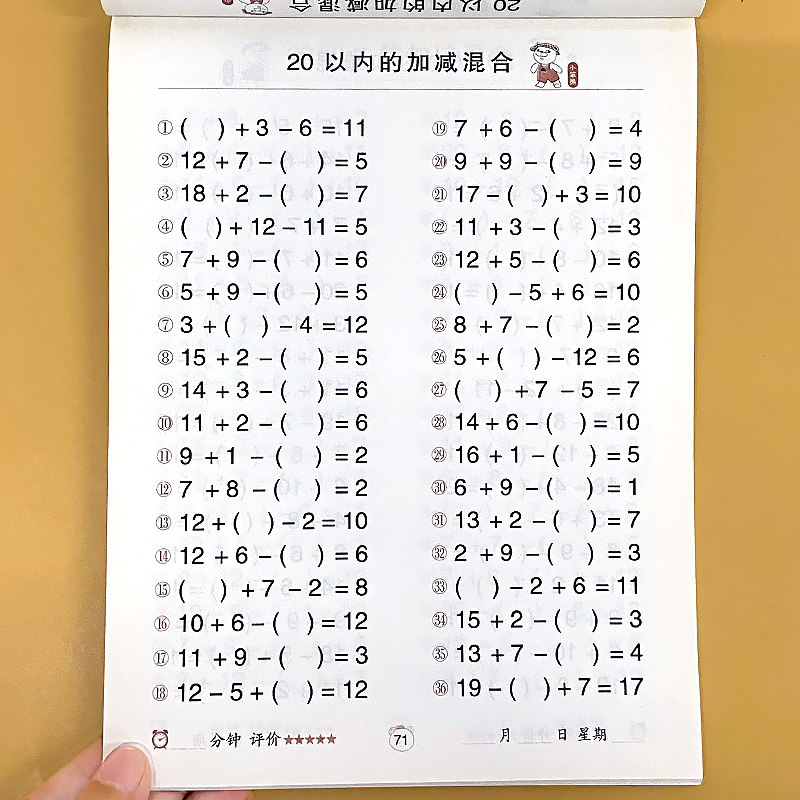 20 以内的加减混合
20 以内的加减混合
小笨熊
① ( ) + 3 − 6 = 11
② 12 + 7 − ( ) = 5
③ 18 + 2 − ( ) = 7
④ ( ) + 12 − 11 = 5
⑤ 7 + 9 − ( ) = 6
⑥ 5 + 9 − ( ) = 5
⑦ 3 + ( ) − 4 = 12
⑧ 15 + 2 − ( ) = 5
⑨ 14 + 3 − ( ) = 6
⑩ 11 + 2 − ( ) = 6
⑪ 9 + 1 − ( ) = 2
⑫ 7 + 8 − ( ) = 2
⑬ 12 + ( ) − 2 = 10
⑭ 12 + 6 − ( ) = 6
⑮ ( ) + 7 − 2 = 8
⑯ 10 + 6 − ( ) = 12
⑰ 11 + 9 − ( ) = 3
⑱ 12 − 5 + ( ) = 12
⑲ 7 + 6 − ( ) = 4
⑳ 9 + 9 − ( ) = 9
㉑ 17 − ( ) + 3 = 10
㉒ 11 + 3 − ( ) = 3
㉓ 12 + 5 − ( ) = 6
㉔ ( ) − 5 + 6 = 10
㉕ 8 + 7 − ( ) = 2
㉖ 5 + ( ) − 12 = 6
㉗ ( ) + 7 − 5 = 7
㉘ 14 + 6 − ( ) = 10
㉙ 16 + 1 − ( ) = 5
㉚ 6 + 9 − ( ) = 1
㉛ 13 + 2 − ( ) = 7
㉜ 2 + 9 − ( ) = 3
㉝ ( ) − 2 + 6 = 11
㉞ 15 + 2 − ( ) = 3
㉟ 13 + 7 − ( ) = 4
㊱ 19 − ( ) + 7 = 17
分钟 评价★★★★★
71
月 日 星期